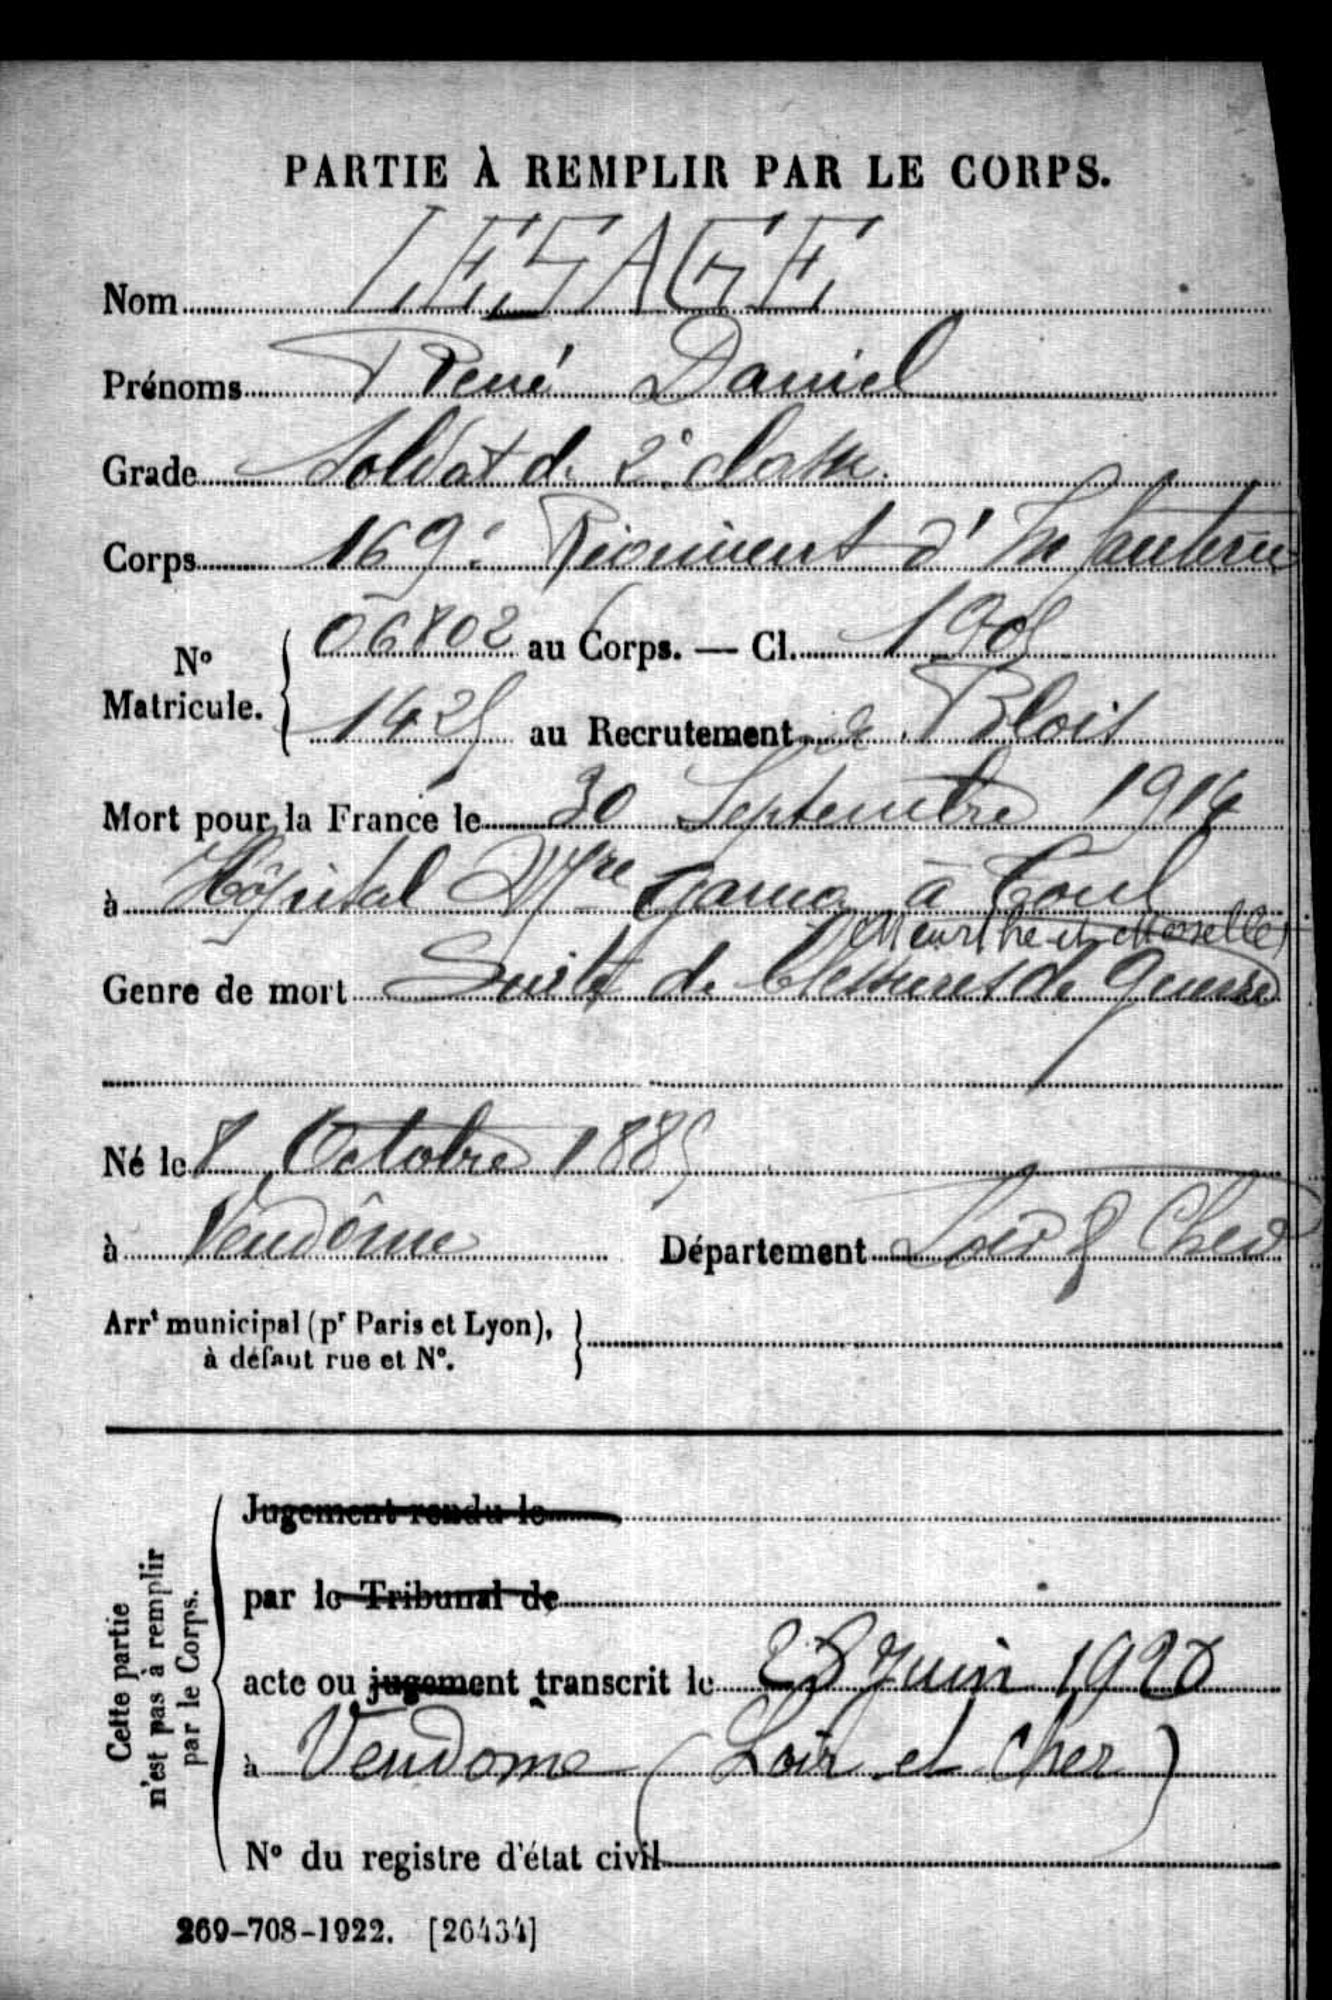 PARTIE À REMPLIR PAR LE CORPS.
Nom LESAGE
Prénoms René Daniel
Grade Soldat de 2e classe
Corps 169e Régiment d'Infanterie
No Matricule. 06802 au Corps. — Cl. 1905
1425 au Recrutement de Blois
Mort pour la France le 30 Septembre 1914
à Hôpital à Toul
(Meurthe et Moselle)
Genre de mort Suites de blessures de guerre
Né le 8 Octobre 1885
à Vendôme Département Loir & Cher
Arrt municipal (pr Paris et Lyon),
à défaut rue et No.
Cette partie
n'est pas à remplir
par le Corps.
Jugement rendu le
par le Tribunal de
acte ou jugement transcrit le 28 Juin 1920
à Vendôme (Loir et Cher)
No du registre d'état civil
269-708-1922. [26434]